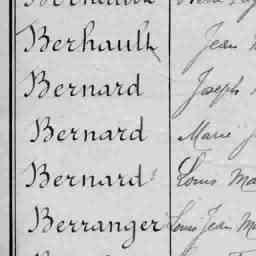 Berhault Jean
Bernard Joseph
Bernard Marie J
Bernard Louis Ma
Berranger Louis Jean M